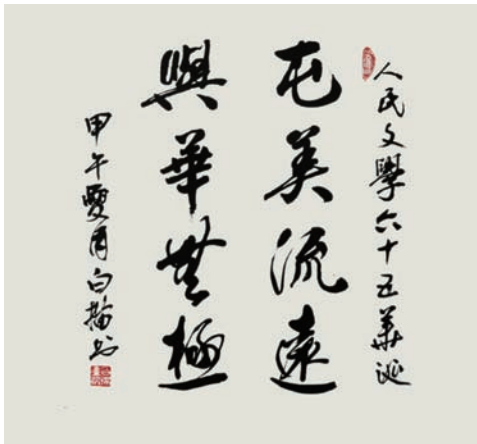 人民文學六十五華诞
屯美流遠
與華無極
甲午夏月白描书